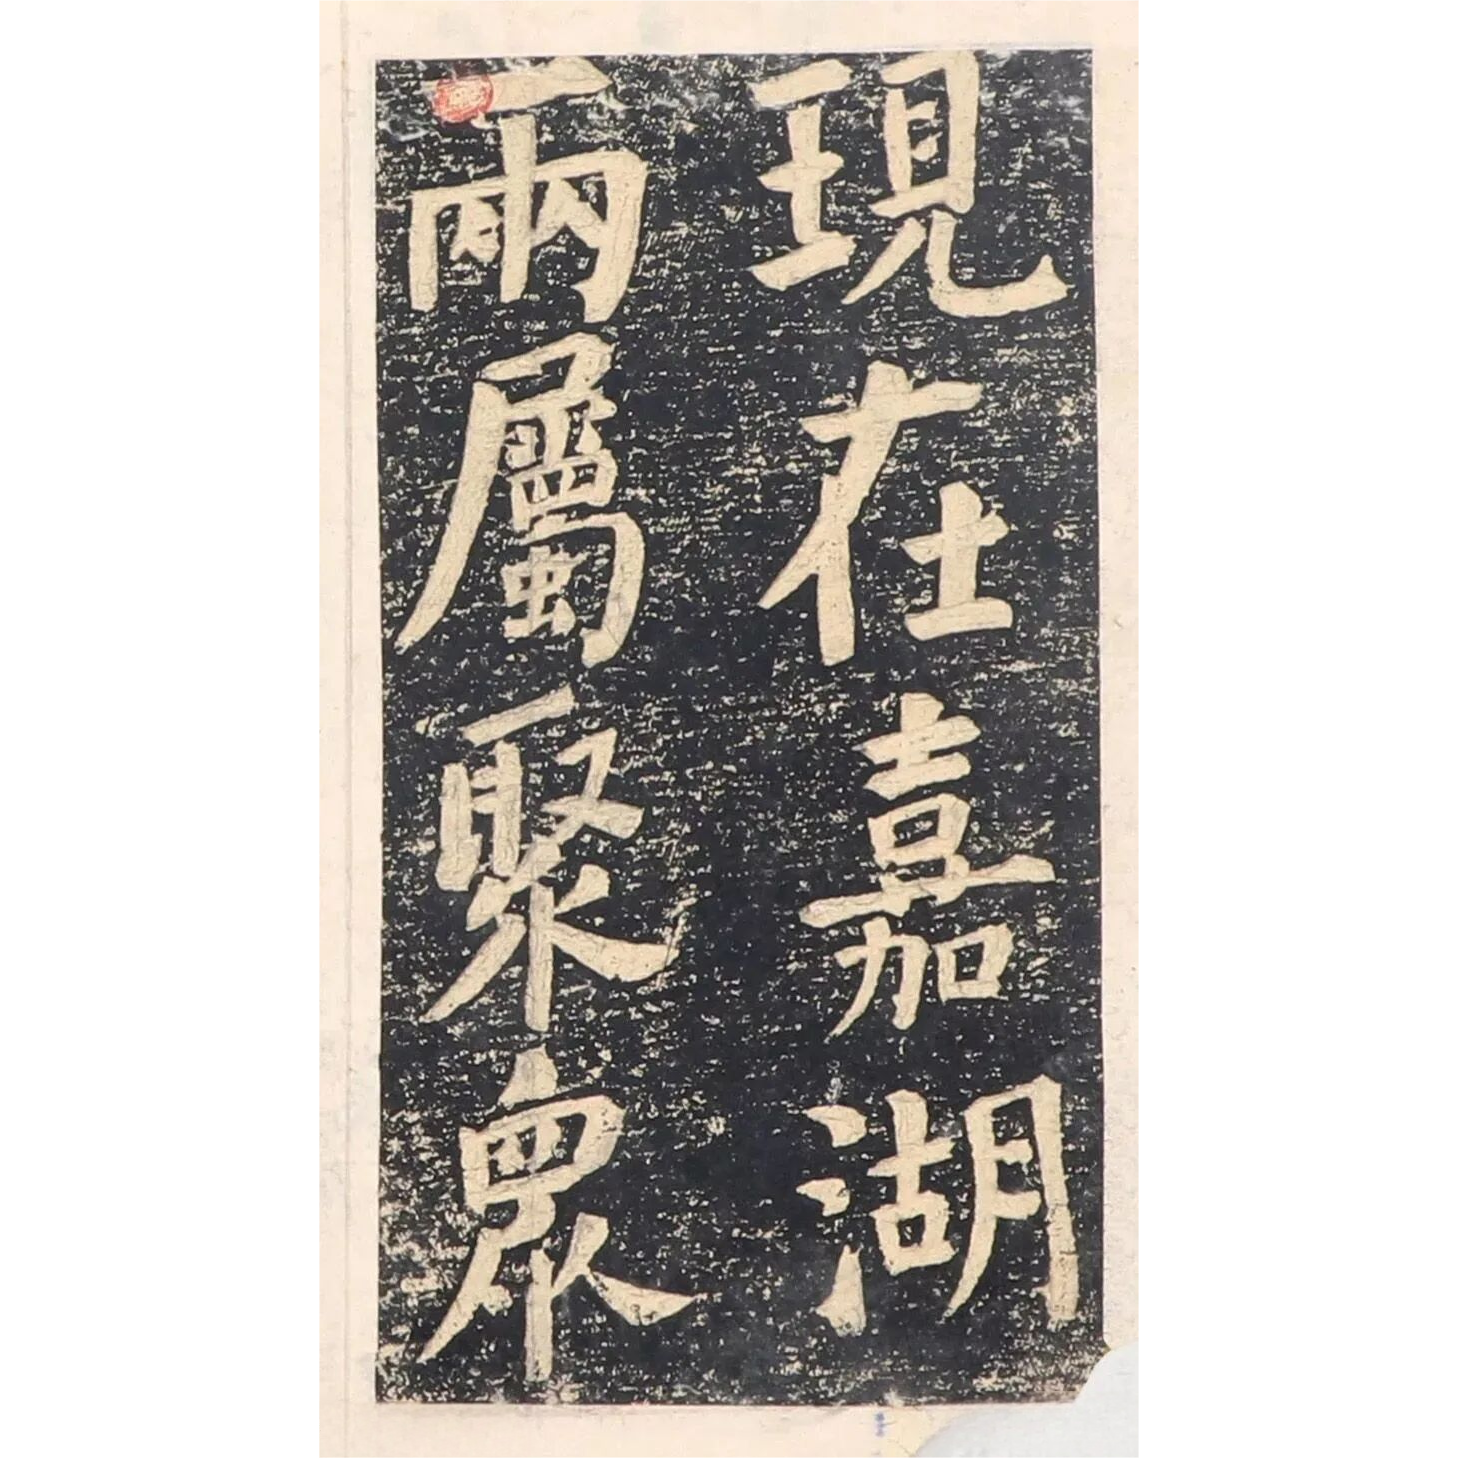 現在嘉湖
兩屬聚眾